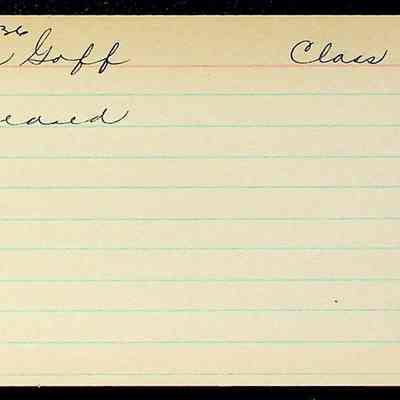 36
Goff Class
eased